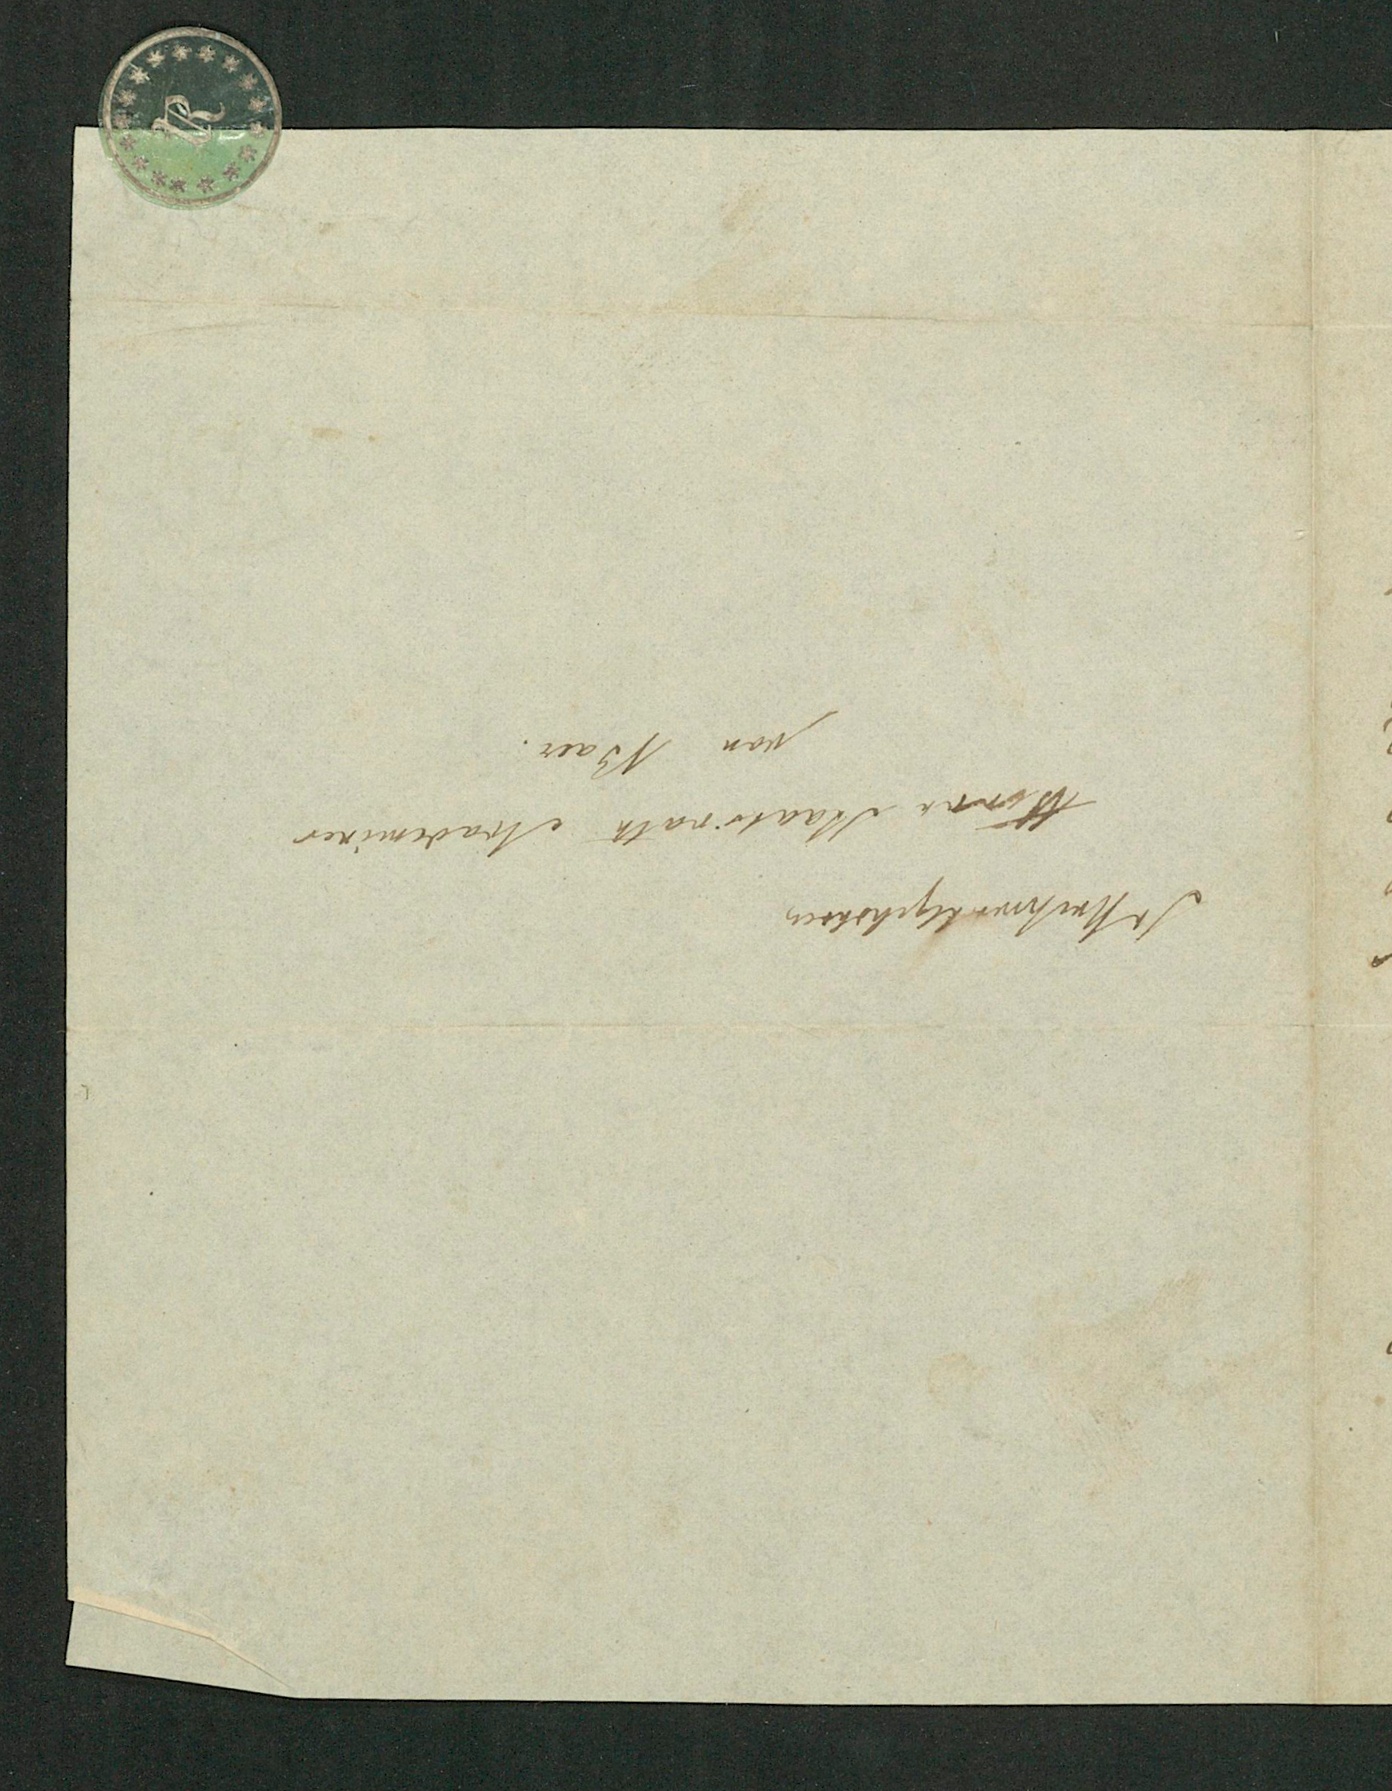 Sr Hochwohlgeboren
Herrn Staatsrath Akademiker
von Baer.